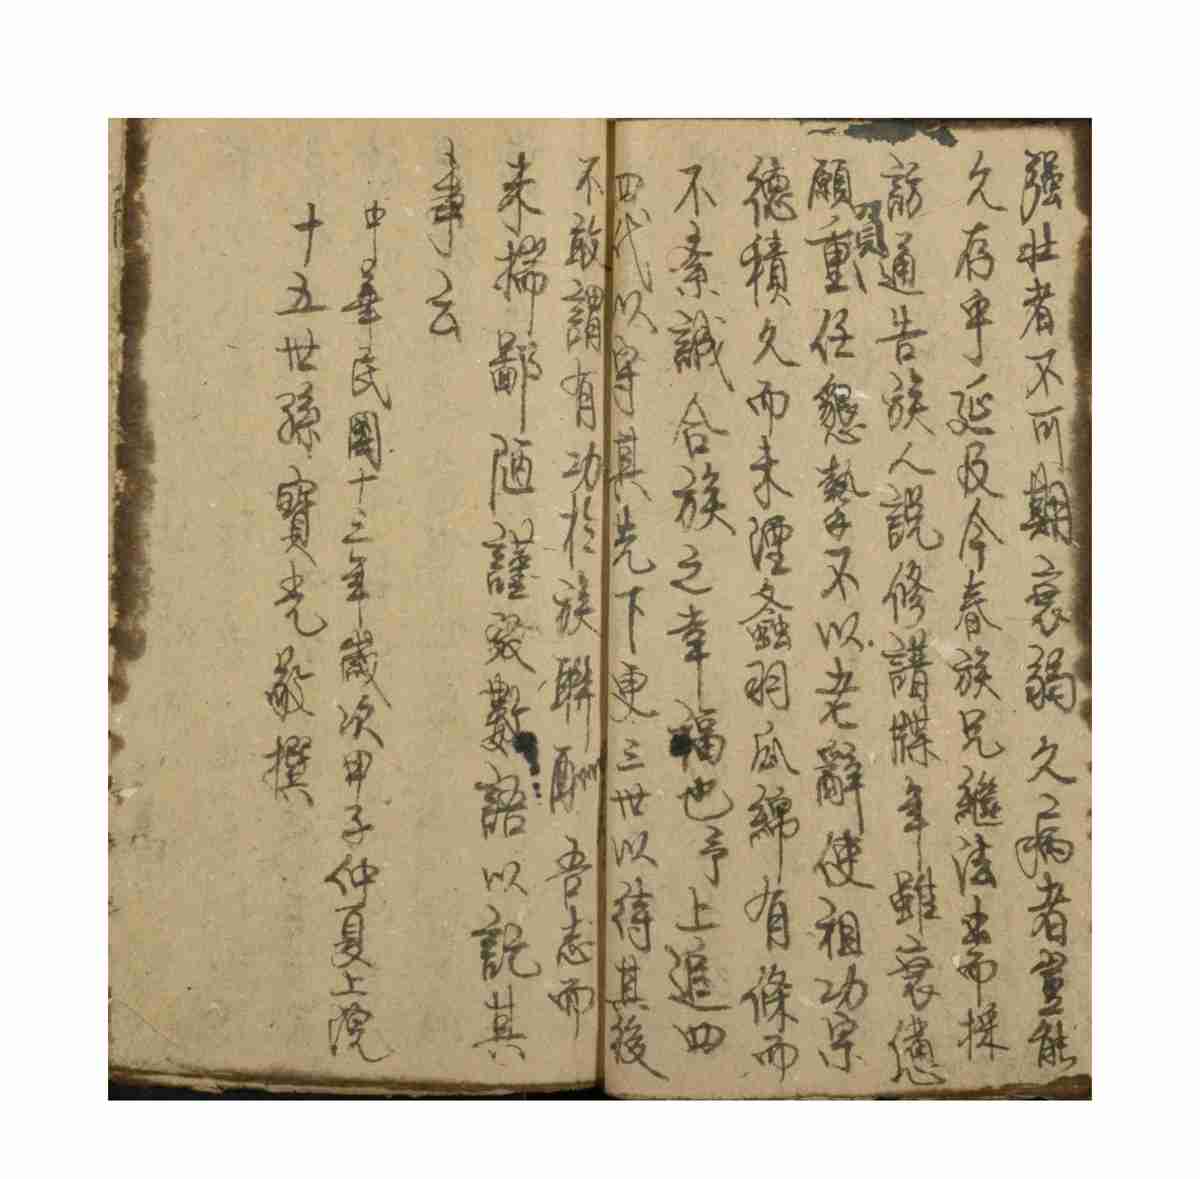 强壯者不可期衰弱久病者豈能
久存乎延及今春族兄繼法出而採
訪通告族人說修譜牒年雖衰憊
願負重任懇摯不以老辭使祖功宗
德積久而未湮螽羽瓜綿有條而
不紊誠合族之幸福也予上追四
四代以守其先下更三世以待其後
不敢謂有功於族聯酬吾志而
未揣鄙陋謹發數語以記其
事云
中華民國十三年歲次甲子仲夏上浣
十五世孫寶光敬撰